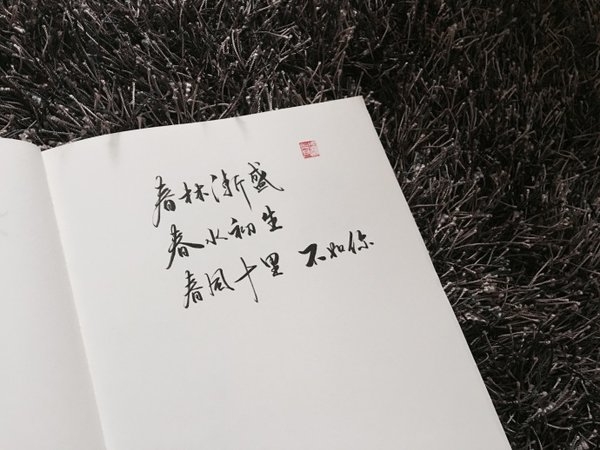 春林渐盛
春水初生
春风十里 不如你